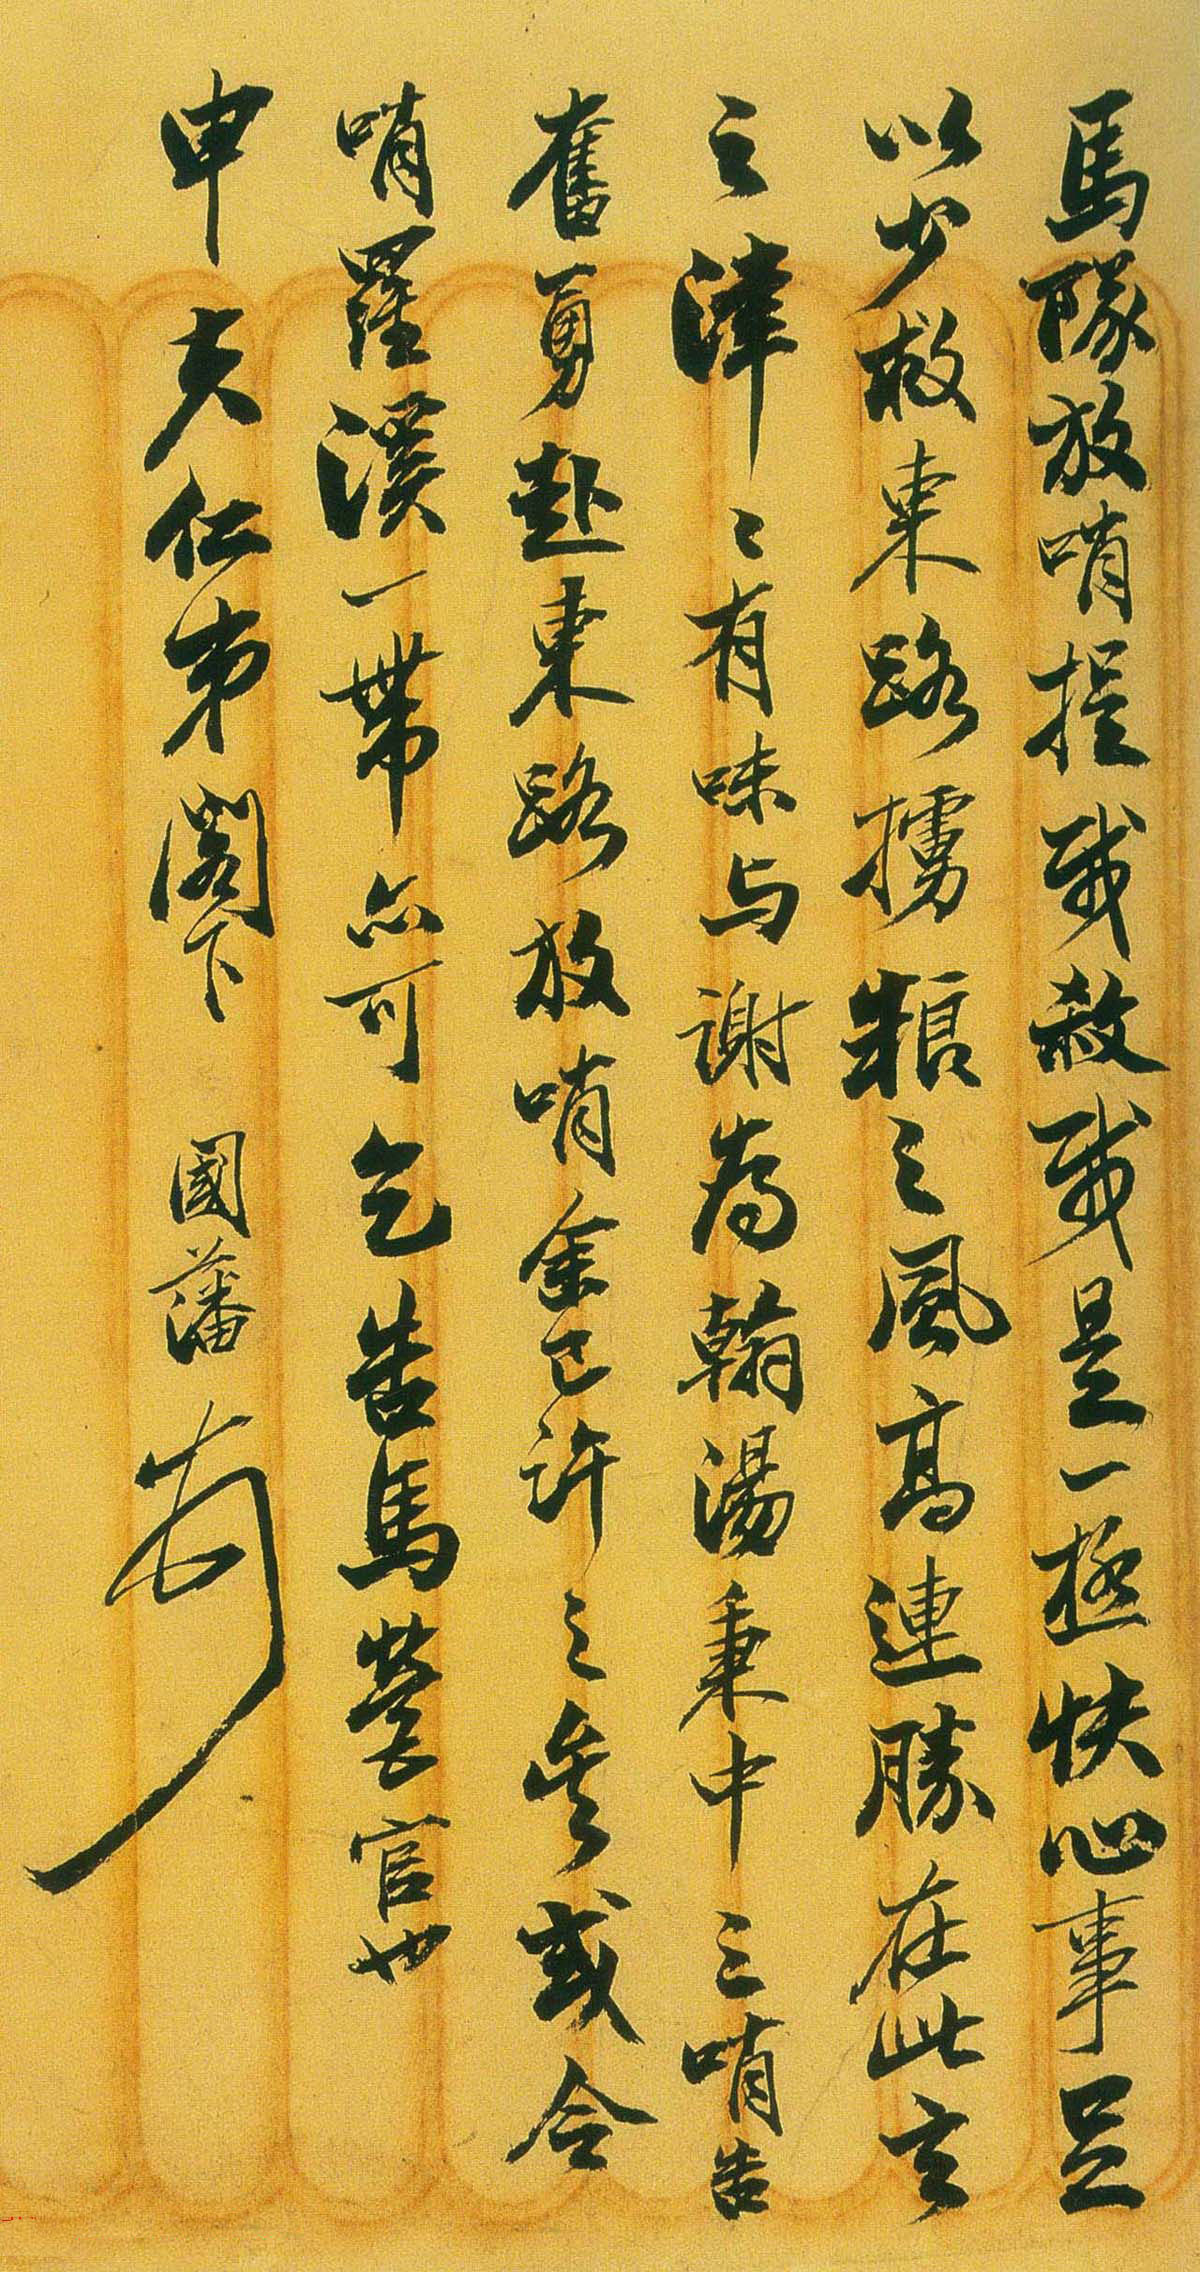 馬隊放哨捉賊殺賊是一極快心事足
以少救東路擄粮之風高連勝在此言
之津〻有味与謝為翰湯秉中三哨告
奮勇赴東路放哨余已許之矣或令
哨羅溪一帶亦可乞告馬營官也
申夫仁弟閣下 國藩